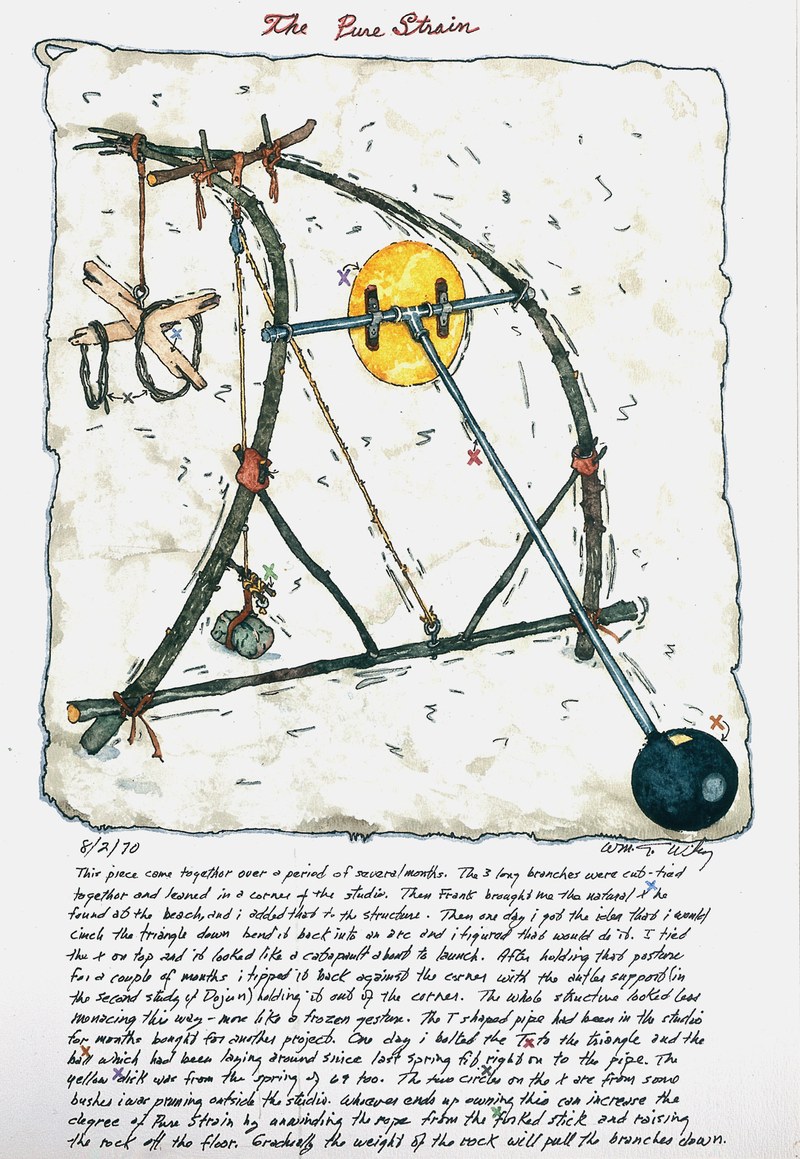 The Pure Strain
8/2/70 Wm. T. Wiley
This piece came together over a period of several months. The 3 long branches were cut-tied
together and leaned in a corner of the studio. Then Frank brought me the natural X he
found at the beach, and i added that to the structure. Then one day i got the idea that i would
cinch the triangle down bend it back into an arc and i figured that would do it. I tied
the X on top and it looked like a catapault about to launch. After holding that posture
for a couple of months i tipped it back against the corner with the antler support (in
the second study of Dojun) holding it out of the corner. The whole structure looked less
menacing this way – more like a frozen gesture. The T shaped pipe had been in the studio
for months bought for another project. One day i bolted the T to the triangle and the
ball which had been laying around since last spring fit right on to the pipe. The
yellow disk was from the spring of 69 too. The two circles on the X are from some
bushes i was pruning outside the studio. Whoever ends up owning this can increase the
degree of Pure Strain by unwinding the rope from the forked stick and raising
the rock off the floor. Gradually the weight of the rock will pull the branches down.